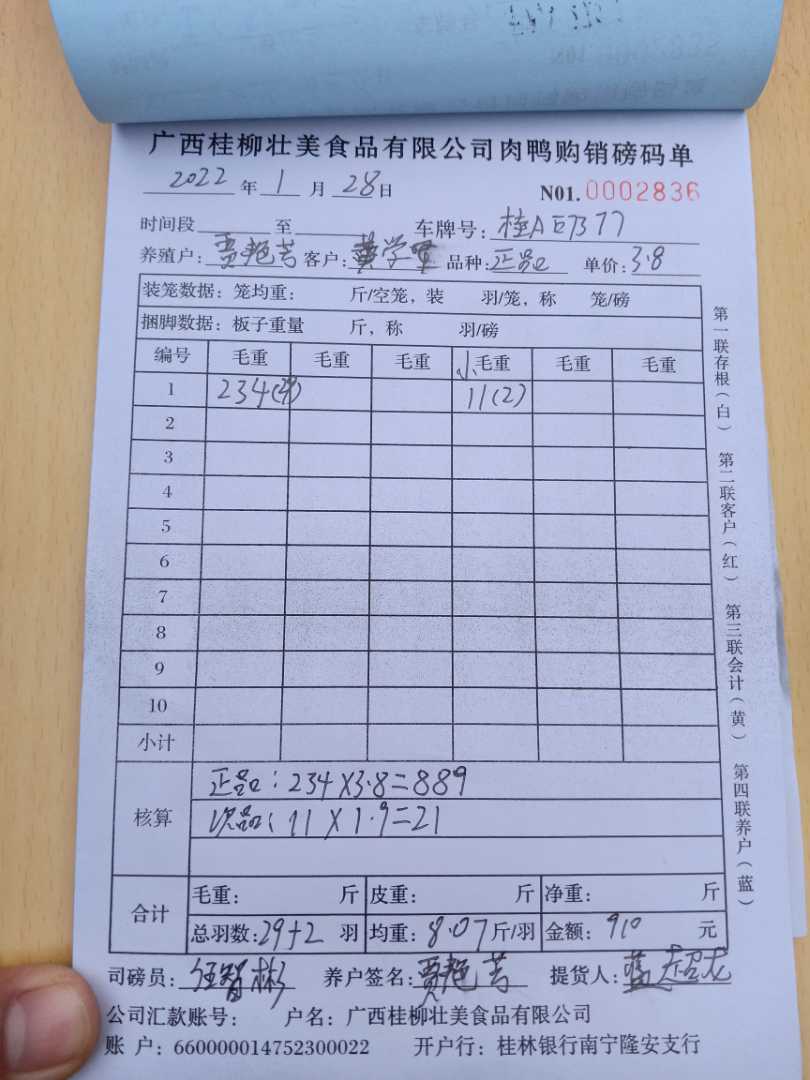 广西桂柳壮美食品有限公司肉鸭购销磅码单
2022 年 1 月 28 日 N01. 0002836
时间段 至 车牌号: 桂A
养殖户: 贾艳芳 客户: 黄学军 品种: 正品 单价: 3.8
装笼数据: 笼均重: 斤/空笼, 装 羽/笼, 称 笼/磅
捆脚数据: 板子重量 斤, 称 羽/磅
编号 毛重 毛重 毛重 小毛重 毛重 毛重
1 234(29) 11(2)
2
3
4
5
6
7
8
9
10
小计
核算
正品: 234X3.8=889
次品: 11X1.9=21
合计
毛重: 斤 皮重: 斤 净重: 斤
总羽数: 29+2 羽 均重: 8.07 斤/羽 金额: 910 元
司磅员: 任智彬 养户签名: 贾艳芳 提货人: 超龙
公司汇款账号: 户名: 广西桂柳壮美食品有限公司
账 户: 660000014752300022 开户行: 桂林银行南宁隆安支行
第一联存根(白) 第二联客户(红) 第三联会计(黄) 第四联养户(蓝)